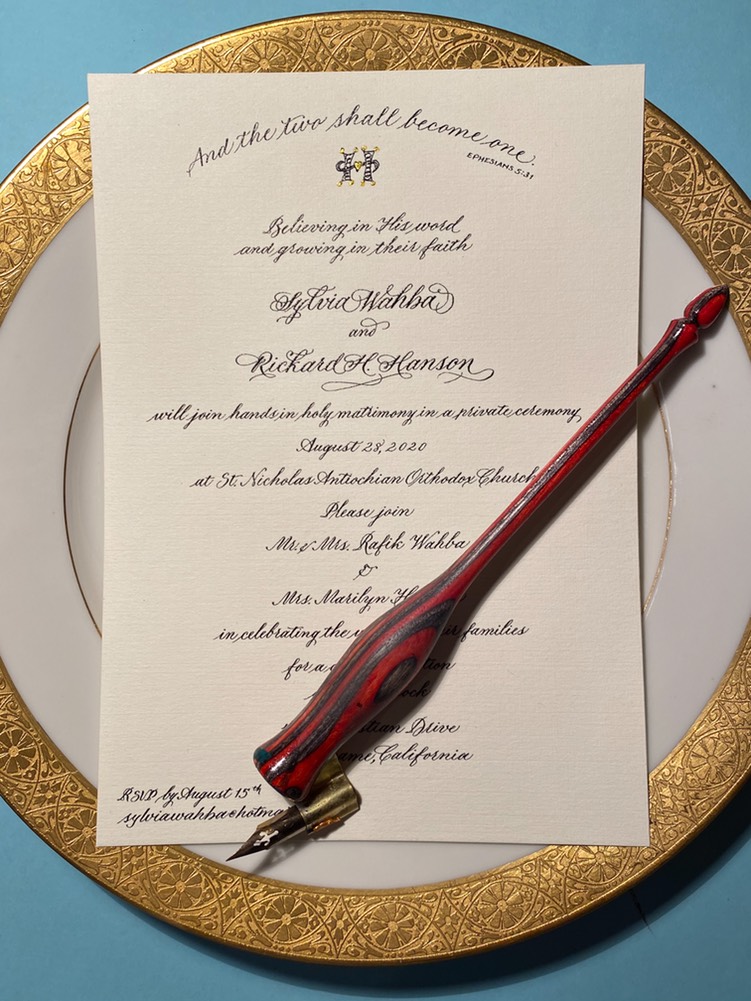 And the two shall become one.
EPHESIANS 5:31
H
Believing in His word
and growing in their faith
Sylvia Wahba
and
Rickard H. Hanson
will join hands in holy matrimony in a private ceremony
August 28, 2020
at St. Nicholas Antiochian Orthodox Church
Please join
Mr. & Mrs. Rafik Wahba
&
Mrs. Marilyn
in celebrating the families
for a
Drive
California
RSVP by August 15th